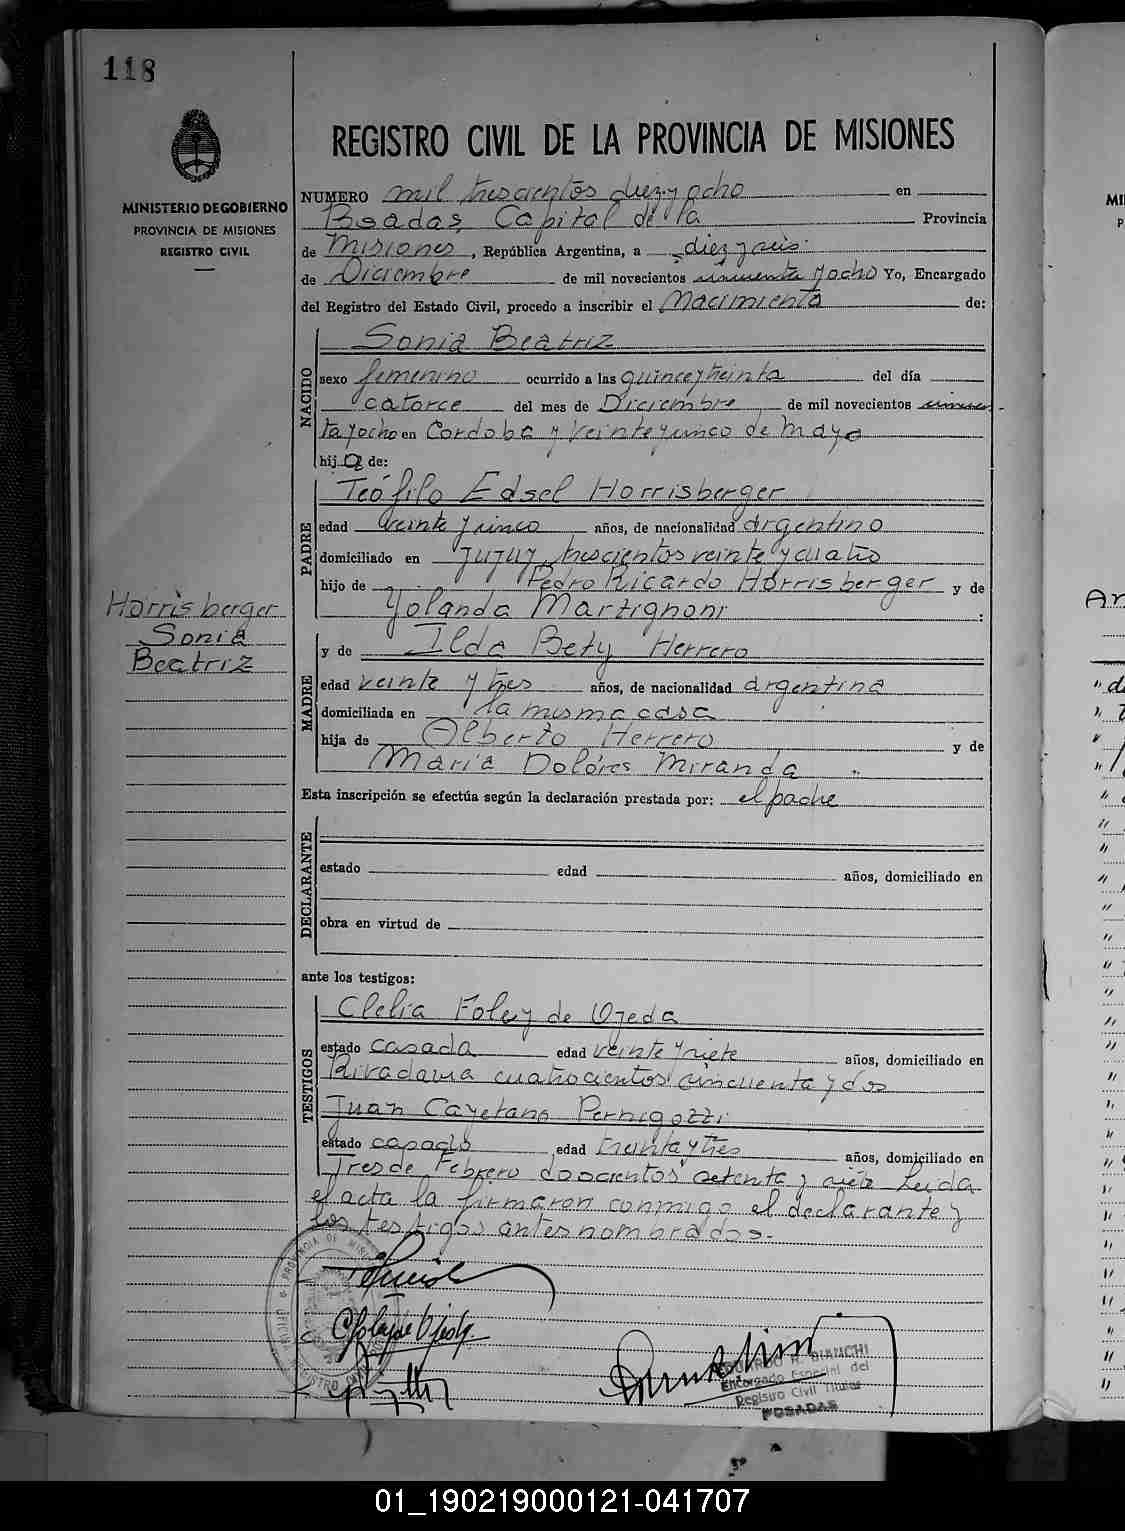 118
MINISTERIO DE GOBIERNO
PROVINCIA DE MISIONES
REGISTRO CIVIL
Horrisberger
Sonia
Beatriz
REGISTRO CIVIL DE LA PROVINCIA DE MISIONES
NUMERO mil trescientos diez y ocho en
Posadas, Capital de la Provincia
de Misiones, República Argentina, a diez y seis
de Diciembre de mil novecientos cincuenta y ocho Yo, Encargado
del Registro del Estado Civil, procedo a inscribir el Nacimiento de:
NACIDO
Sonia Beatriz
sexo femenino ocurrido a las quince y treinta del día
catorce del mes de Diciembre de mil novecientos cincuen-
ta y ocho en Cordoba y Veinte y cinco de Mayo
hija de:
PADRE
Teófilo Edsel Horrisberger
edad veinte y cinco años, de nacionalidad argentino
domiciliado en Jujuy trescientos veinte y cuatro
hijo de Pedro Ricardo Horrisberger y de
Yolanda Martignoni :
MADRE
y de Ilda Bety Herrero
edad veinte y tres años, de nacionalidad argentina
domiciliada en la misma casa
hija de Alberto Herrero y de
Maria Dolores Miranda
Esta inscripción se efectúa según la declaración prestada por: el padre
DECLARANTE
estado edad años, domiciliado en
obra en virtud de
ante los testigos:
TESTIGOS
Clelia Foley de Ojeda
estado casada edad veinte y siete años, domiciliado en
Rivadavia cuatrocientos cincuenta y dos
Juan Cayetano Pernigozzi
estado casado edad treinta y tres años, domiciliado en
Tres de Febrero doscientos setenta y siete Leida
el acta la firmaron conmigo el declarante y
los testigos antes nombrados.-
EDUARDO R. BIANCHI
Encargado Especial del
Registro Civil Titular
POSADAS
01_190219000121-041707